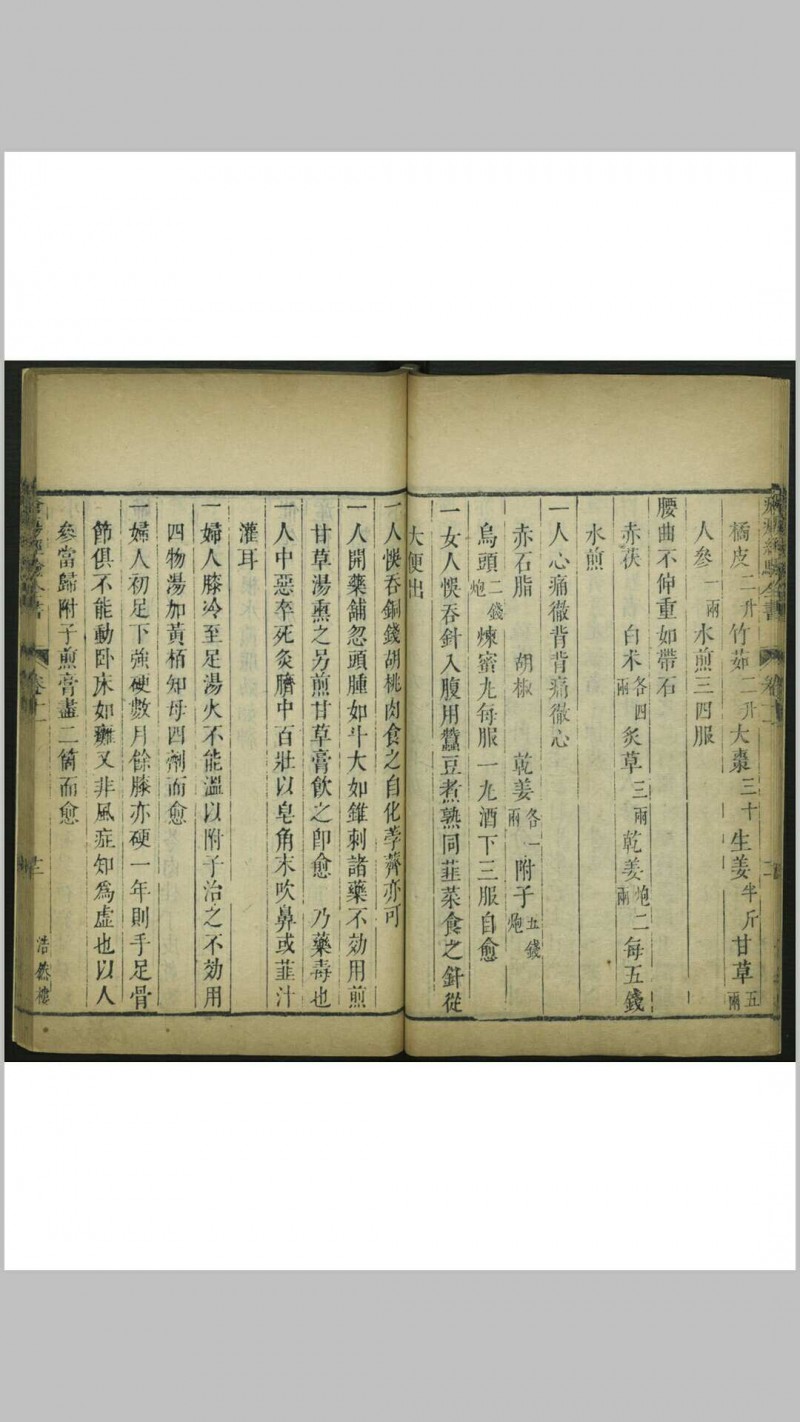 橘皮二升竹茹二升大棗三十生姜半斤甘草五兩
人參一兩水煎三四服
腰曲不伸重如帶石
赤茯 白朮各四兩炙草三兩乾姜炮二兩每五錢
水煎
一人心痛徹背背痛徹心
赤石脂 胡椒 乾姜各一兩附子五錢炮
烏頭二錢炮煉蜜丸每服一丸酒下三服自愈
一女人悞吞針入腹用蠶豆煮熟同韮菜食之針從
大便出
一人悞吞銅錢胡桃肉食之自化荸薺亦可
一人開藥舖忽頭腫如斗大如錐刺諸藥不効用煎
甘草湯熏之另煎甘草膏飲之即愈 乃藥毒也
一人中惡卒死灸臍中百壯以皂角末吹鼻或韮汁
灌耳
一婦人膝冷至足湯火不能溫以附子治之不効用
四物湯加黃栢知母四劑而愈
一婦人初足下強硬數月餘膝亦硬一年則手足骨
節俱不能動卧床如癱又非風症知爲虛也以人
參當歸附子煎膏盡二觔而愈
卷十一
浩然樓